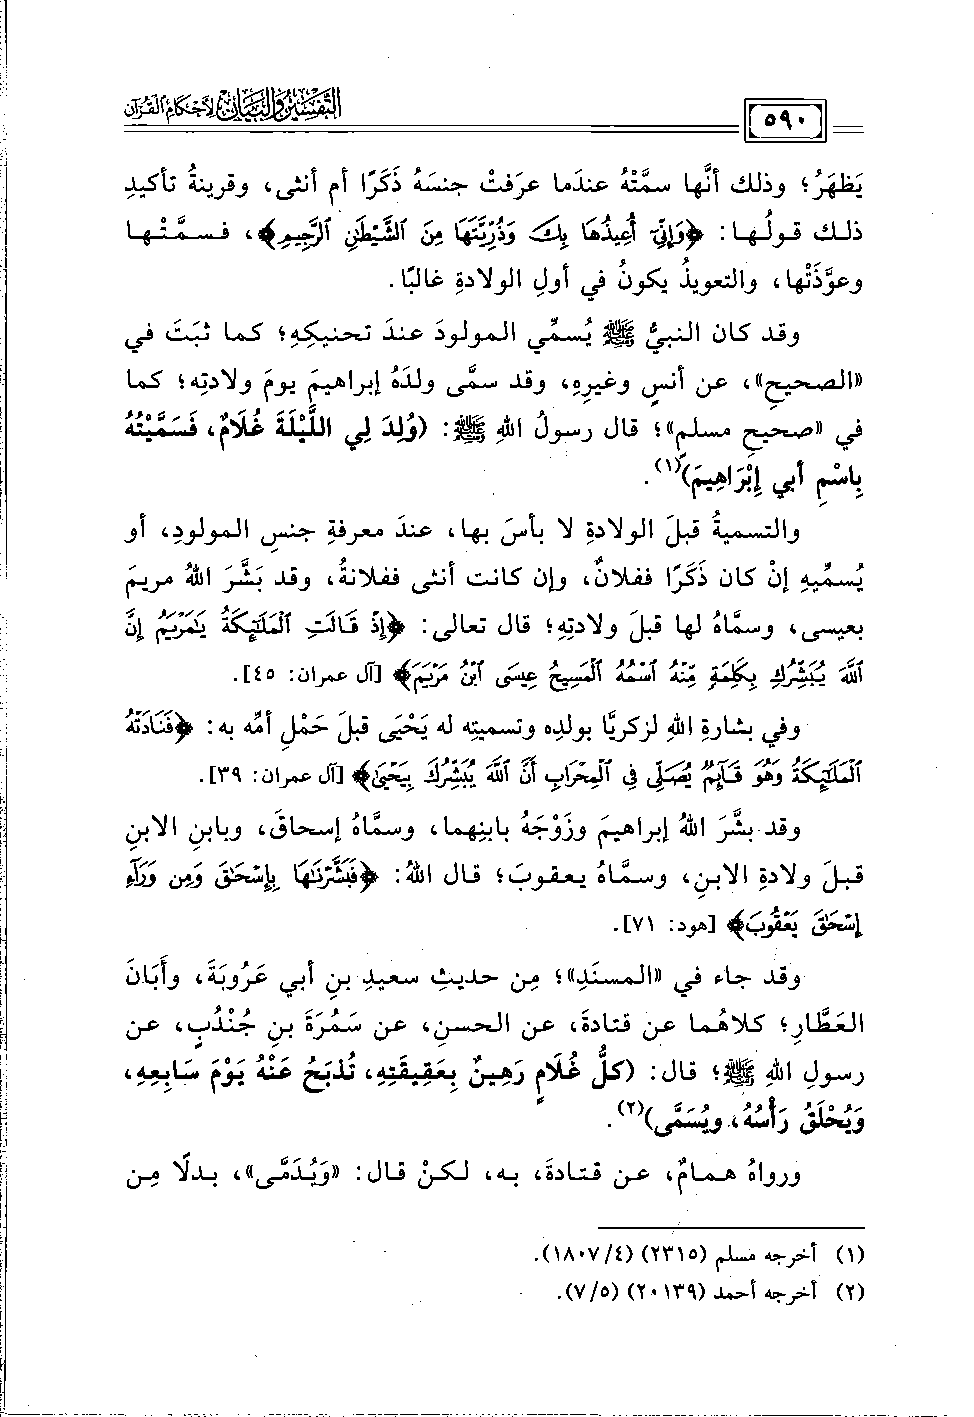 ٥٩٠
التفسير والبيان لأحكام القرآن
يَظهَرُ؛ وذلك أنَّها سمَّتْهُ عندَما عرَفتْ جنسَهُ ذَكَرًا أم أنثى، وقرينةُ تأكيدِ
ذلك قولُها: ﴿وَإِنِّىٓ أُعِيذُهَا بِكَ وَذُرِّيَّتَهَا مِنَ ٱلشَّيْطَٰنِ ٱلرَّجِيمِ﴾، فسمَّتْها
وعوَّذَتْها، والتعويذُ يكونُ في أولِ الولادةِ غالبًا.
وقد كان النبيُّ ﷺ يُسمِّي المولودَ عندَ تحنيكِهِ؛ كما ثبَتَ في
«الصحيحِ»، عن أنسٍ وغيرِهِ، وقد سمَّى ولدَهُ إبراهيمَ يومَ ولادتِه؛ كما
في «صحيحِ مسلمٍ»؛ قال رسولُ اللهِ ﷺ: (وُلِدَ لِي اللَّيْلَةَ غُلَامٌ، فَسَمَّيْتُهُ
بِاسْمِ أبي إِبْرَاهِيمَ)(١).
والتسميةُ قبلَ الولادةِ لا بأسَ بها، عندَ معرفةِ جنسِ المولودِ، أو
يُسمِّيهِ إنْ كان ذَكَرًا ففلانٌ، وإن كانت أنثى ففلانةُ، وقد بَشَّرَ اللهُ مريمَ
بعيسى، وسمَّاهُ لها قبلَ ولادتِهِ؛ قال تعالى: ﴿إِذْ قَالَتِ ٱلْمَلَٰٓئِكَةُ يَٰمَرْيَمُ إِنَّ
ٱللَّهَ يُبَشِّرُكِ بِكَلِمَةٍ مِّنْهُ ٱسْمُهُ ٱلْمَسِيحُ عِيسَى ٱبْنُ مَرْيَمَ﴾ [آل عمران: ٤٥].
وفي بشارةِ اللهِ لزكريَّا بولدِه وتسميتِه له يَحْيَى قبلَ حَمْلِ أمِّه به: ﴿فَنَادَتْهُ
ٱلْمَلَٰٓئِكَةُ وَهُوَ قَآئِمٌ يُصَلِّى فِى ٱلْمِحْرَابِ أَنَّ ٱللَّهَ يُبَشِّرُكَ بِيَحْيَىٰ﴾ [آل عمران: ٣٩].
وقد بشَّرَ اللهُ إبراهيمَ وزَوْجَهُ بابنِهما، وسمَّاهُ إسحاقَ، وبابنِ الابنِ
قبلَ ولادةِ الابنِ، وسمَّاهُ يعقوبَ؛ قال اللهُ: ﴿فَبَشَّرْنَٰهَا بِإِسْحَٰقَ وَمِن وَرَآءِ
إِسْحَٰقَ يَعْقُوبَ﴾ [هود: ٧١].
وقد جاء في «المسنَدِ»؛ مِن حديثِ سعيدِ بنِ أبي عَرُوبَةَ، وأَبَانَ
العَطَّارِ؛ كلاهُما عن قتادةَ، عن الحسنِ، عن سَمُرَةَ بنِ جُنْدُبٍ، عن
رسولِ اللهِ ﷺ؛ قال: (كلُّ غُلَامٍ رَهِينٌ بِعَقِيقَتِهِ، تُذبَحُ عَنْهُ يَوْمَ سَابِعِهِ،
وَيُحْلَقُ رَأْسُهُ، ويُسَمَّى)(٢).
ورواهُ همامٌ، عن قتادةَ، به، لكنْ قال: «وَيُدَمَّى»، بدلًا مِن
(١) أخرجه مسلم (٢٣١٥) (٤/١٨٠٧).
(٢) أخرجه أحمد (٢٠١٣٩) (٥/٧).